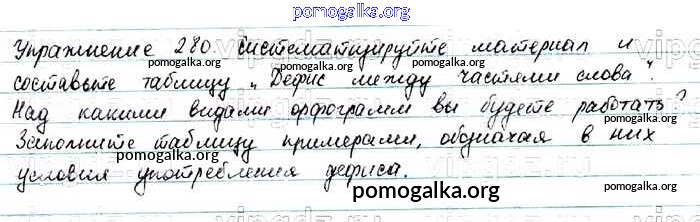 pomogalka.org
Упражнение 280. Систематизируйте материал и
pomogalka.org
составьте таблицу „Дефис между частями слова".
Над какими видами орфограмм вы будете работать?
pomogalka.org
Заполните таблицу примерами, обозначая в них
pomogalka.org
условия употребления дефиса.
pomogalka.org